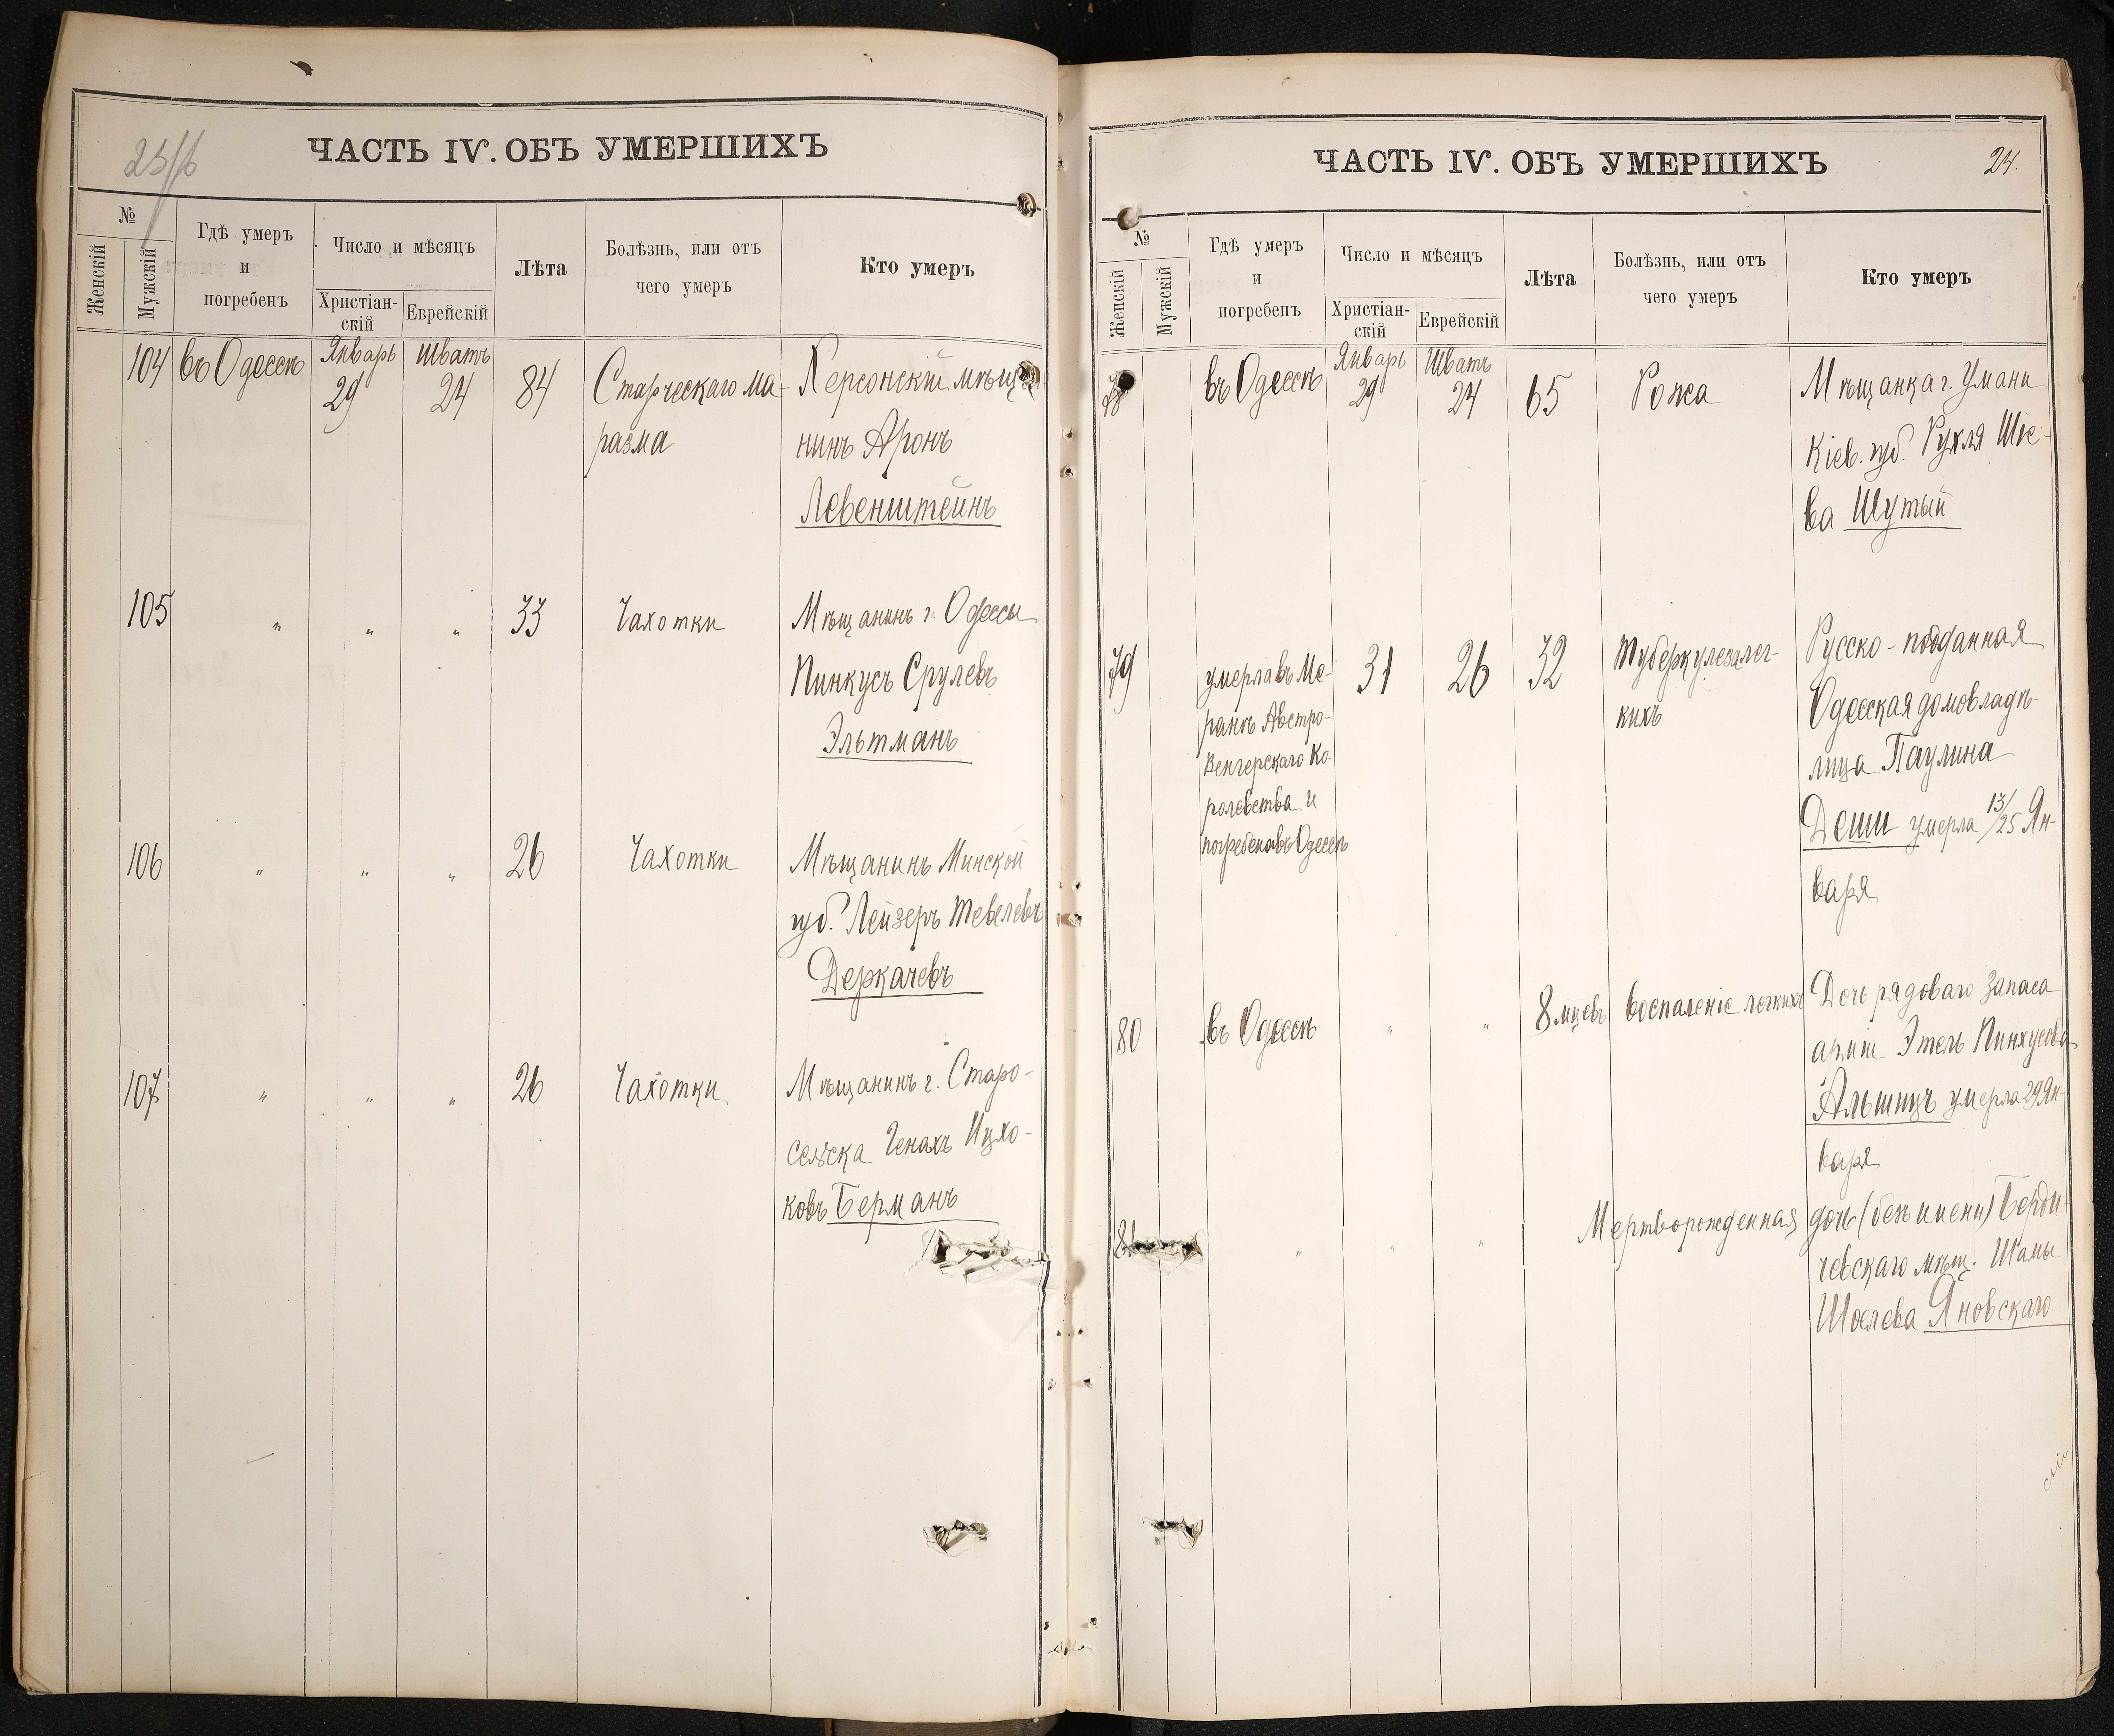 23/16
ЧАСТЬ IV. ОБЪ УМЕРШИХЪ
№
Женскій
Мужскій
Гдѣ умеръ
и
погребенъ
Число и мѣсяцъ
Христіан-
скій
Еврейскій
Лѣта
Болѣзнь, или отъ
чего умеръ
Кто умеръ
104 въ Одессѣ Январь 29 Шватъ 24 84 Старческаго ма- Херсонскій мѣща-
разма нинъ Аронъ
Левенштейнъ
105 " " " 33 Чахотки Мѣщанинъ г. Одессы
Пинкусъ Срулевъ
Эльтманъ
106 " " " 26 Чахотки Мѣщанинъ Минской
губ. Лейзеръ Тевелевъ
Деркачевъ
107 " " " 26 Чахотки Мѣщанинъ г. Старо-
сельска Генахъ Ицхо-
ковъ Берманъ
ЧАСТЬ IV. ОБЪ УМЕРШИХЪ
24.
№
Женскій
Мужскій
Гдѣ умеръ
и
погребенъ
Число и мѣсяцъ
Христіан-
скій
Еврейскій
Лѣта
Болѣзнь, или отъ
чего умеръ
Кто умеръ
78 въ Одессѣ Январь 29 Шватъ 24 65 Рожа Мѣщанка г. Умани
Кіев. губ. Рухля Шіе-
ва Шутый
79 умерла въ Ме- 31 26 32 Туберкулеза лег- Русско-подданная
ранѣ Австро- кихъ Одесская домовладѣ-
Венгерскаго Ко- лица Паулина
ролевства и Деши умерла 13/25 Ян-
погребена въ Одессѣ варя
80 въ Одессѣ " " 8 мцевъ Воспаленіе легкихъ Дочь рядоваго запаса
арміи Этель Пинхусова
Альшицъ умерла 29 Ян-
варя
81 " " " Мертворожденная дочь (безъ имени) Берди-
чевскаго мѣщ. Шамы
Шоелева Яновскаго